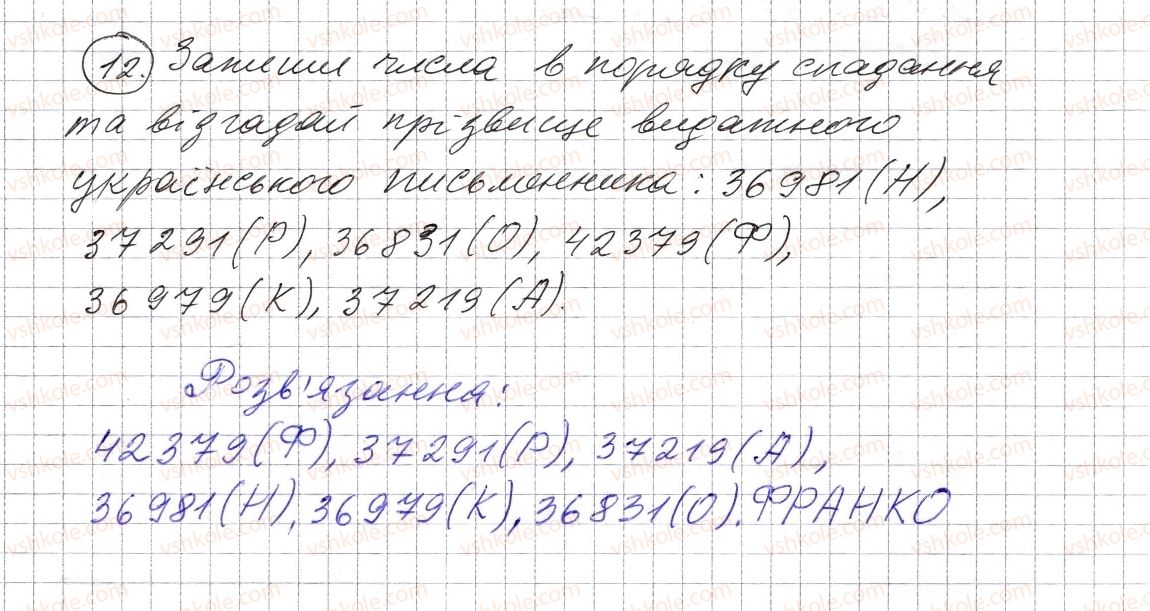 12. Запиши числа в порядку спадання
та відгадай прізвище видатного
українського письменника: 36981(Н),
37291(Р), 36831(О), 42379(Ф),
36979(К), 37219(А).
Розв'язання:
42379(Ф), 37291(Р), 37219(А),
36981(Н), 36979(К), 36831(О). ФРАНКО